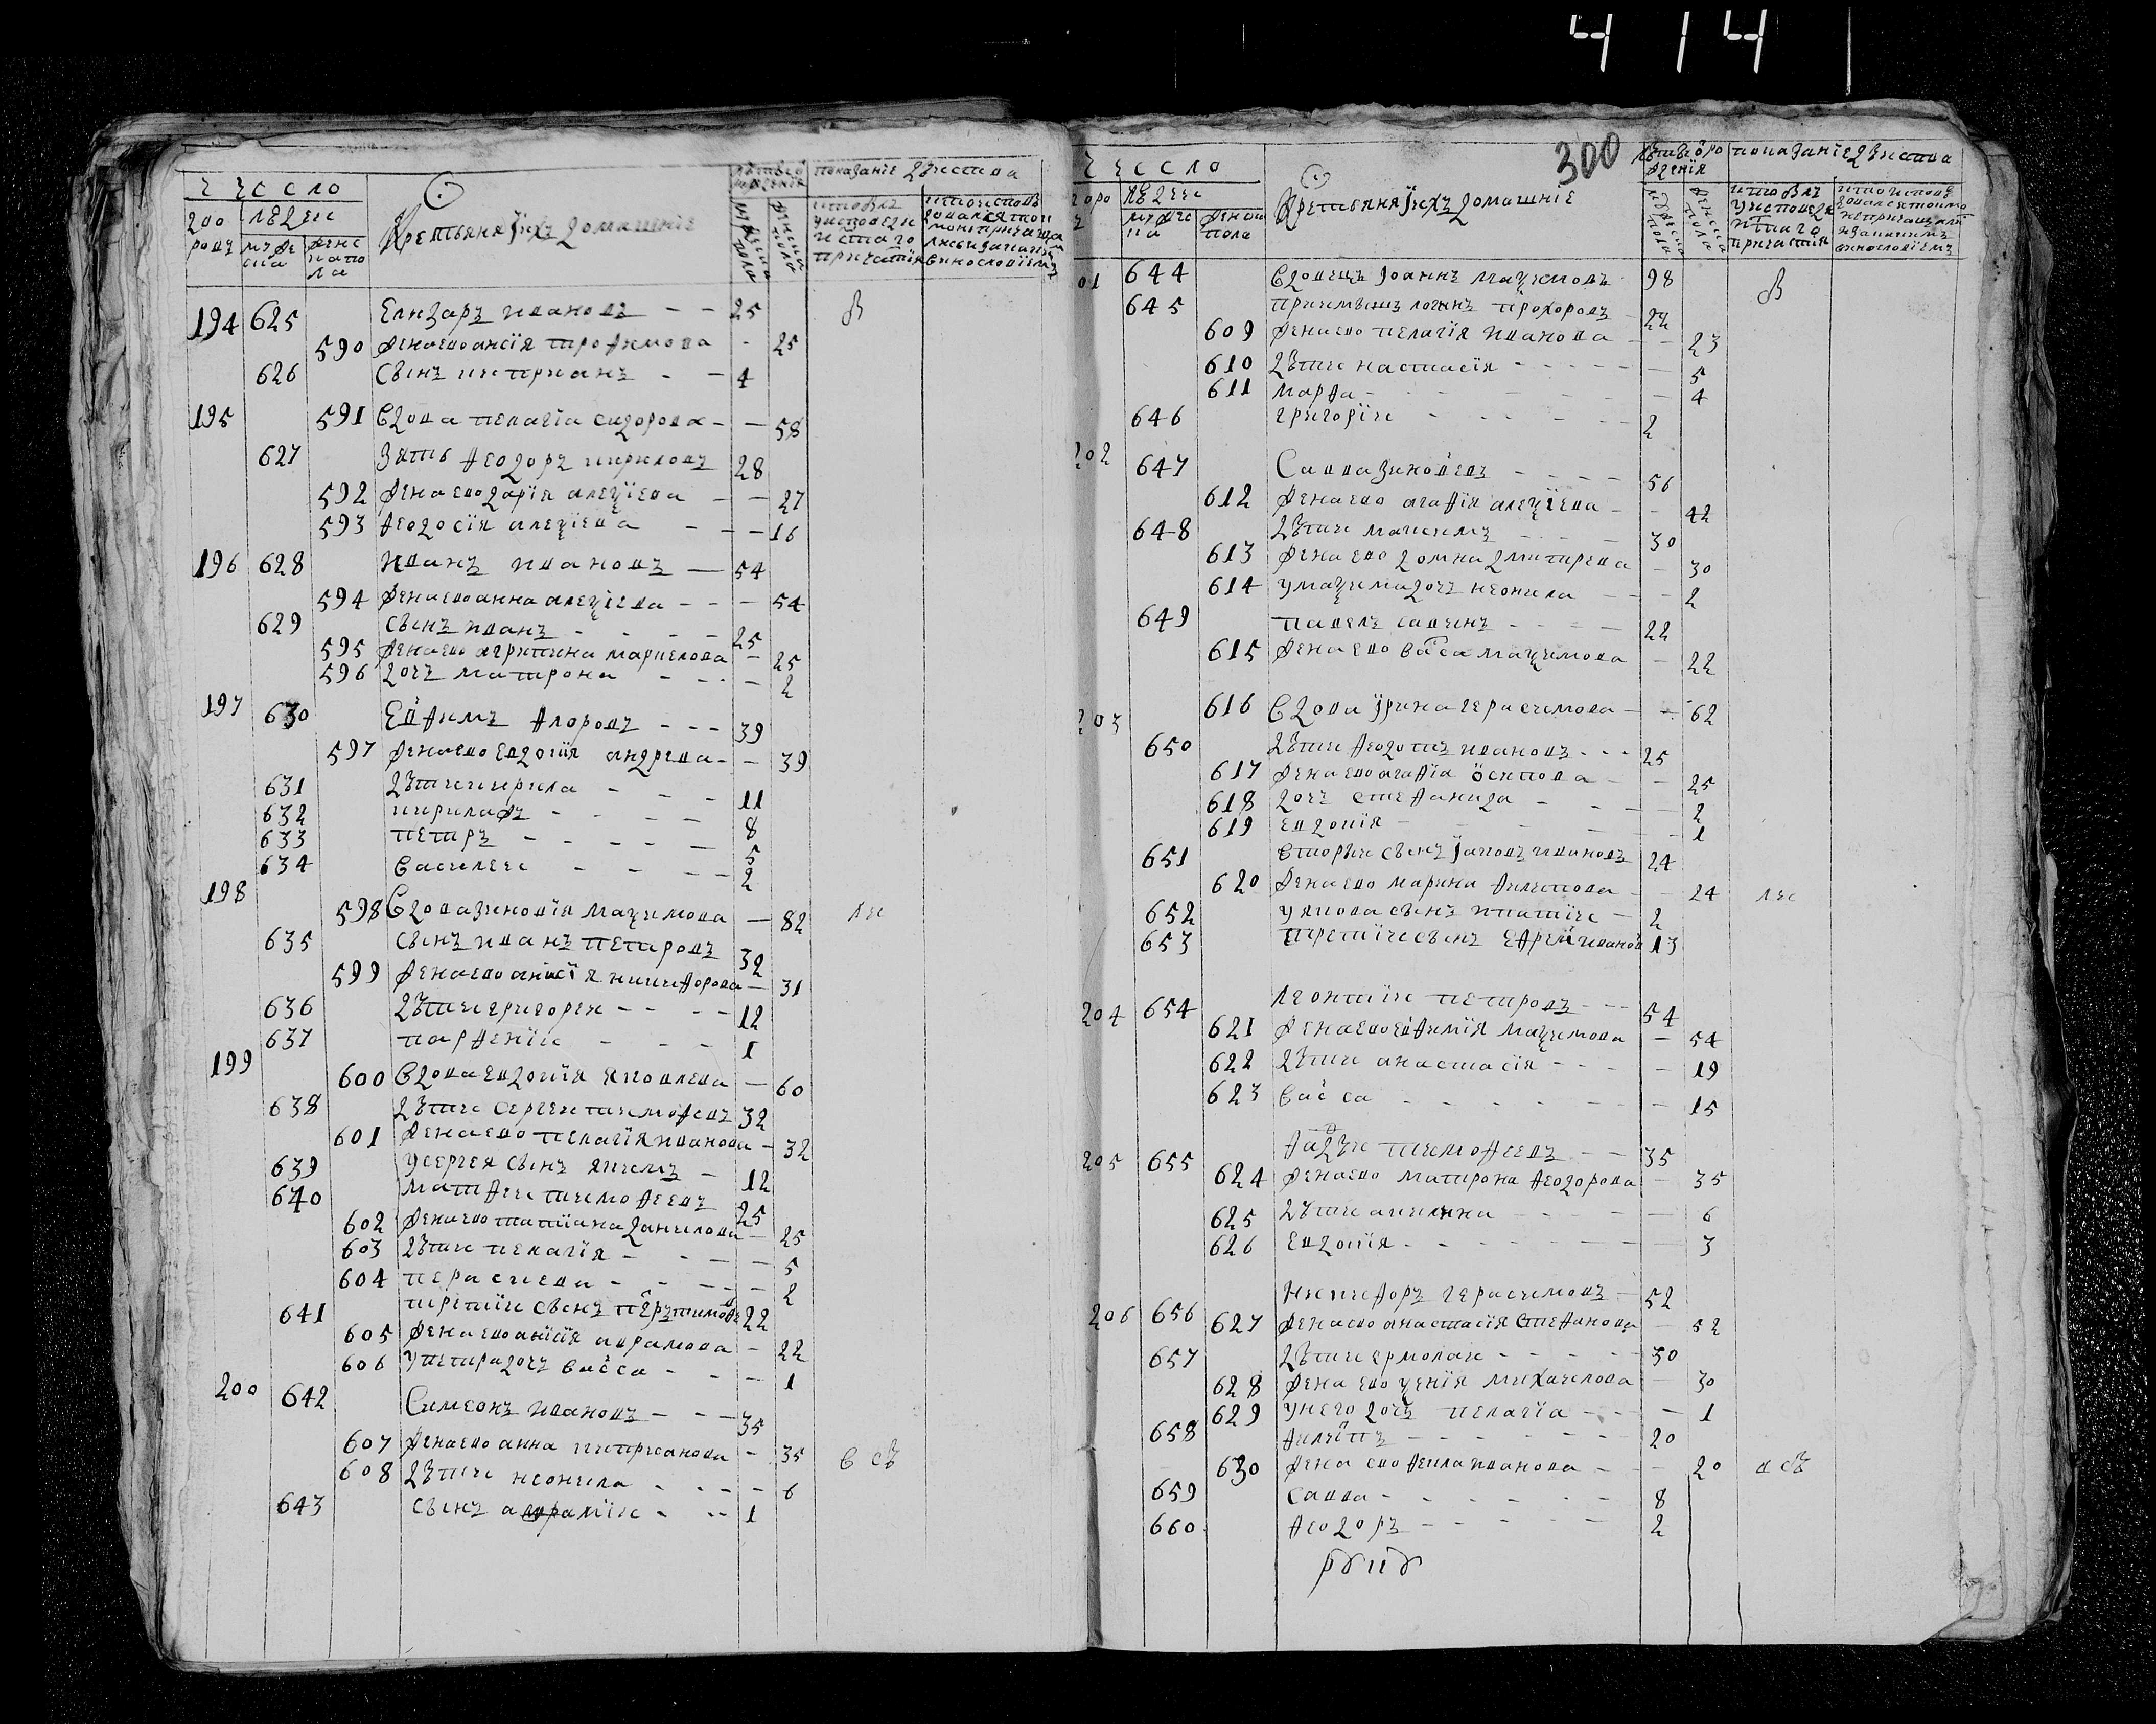 414
число
дворовъ
людеи
мужеска
женска пола
Крестьяня ихъ домашние
лѣтъ от рождения
мужеска пола
женска пола
показание дѣиства
кто былъ у исповеди и стаго причастия
194 625 Елизаръ Ивановъ 25
590 жена ево ансия трофимова 25
626 сынъ киприанъ 4
195 591 Вдова пелагиа сидорова 58
627 Зять феодоръ кириловъ 28
592 жена ево дария алеѯиева 27
593 феодосия алеѯиева 16
196 628 Иванъ Ивановъ 54
594 жена ево анна алеѯиева 54
629 сынъ иванъ 25
595 жена ево агрипина маркелова 25
596 дочъ матрона 2
197 630 Евфимъ флоровъ 39
597 жена ево евдокия андреева 39
631 дѣти кирила 11
632 кирила 8
633 петръ 5
634 василеи 2
198
598 Вдова зиновия маѯимова 82
635 сынъ иванъ петровъ 32
599 жена ево анисия никифорова 31
636 дѣти григореи 12
637 парфении 1
199
600 Вдова евдокия яковлева 60
638 дѣти сергеи тимофеевъ 32
601 жена ево пелагия иванова 32
639 у сергея сынъ якимъ 12
640 матфеи тимофеевъ 25
602 жена ево татиана данилова 25
603 дѣти пелагия 5
604 пераскева 2
641 третии сынъ петръ тимофе 22
605 жена ево акилия аврамова 22
606 у петра дочъ васса 1
200 642 Симеонъ ивановъ 35
607 жена ево анна киприанова 35
608 дѣти неонила 6
643 сынъ 1
в сѣ
300
число
людеи
Крестьяня ихъ домашние
показание дѣиства
01 644 Вдовецъ иоаннъ маѯимовъ 98
645 приимышъ логинъ прохоровъ 22
609 жена ево пелагия иванова 23
610 дѣти настасия 5
611 марфа 4
646 григории 2
202
647 Савва зиновиевъ 56
612 жена ево агафия алеѯиева 42
648 дѣти маѯимъ 30
613 жена ево домна дмитрева 30
614 у маѯима дочъ неонила 2
649 павелъ савинъ 22
615 жена ево васа маѯимова 22
203 616 Вдова ирина герасимова 62
650 дѣти федотъ ивановъ 25
617 жена ево агафиа осипова 25
618 дочъ стефанида 2
619 евдокия 1
651 вторыи сынъ иаковъ ивановъ 24
620 жена ево марина филипова 24
652 у якова сынъ ипатии 2
653 третии сынъ ефреи иванов 13
204 654 Леонтии петровъ 54
621 жена ево евфимия маѯимова 54
622 дѣти анастасия 19
623 васса 15
205 655 фадѣи тимофеевъ 35
624 жена ево матрона феодорова 35
625 дѣти акилина 6
626 евдокия 3
206 656 Никифоръ герасимовъ 52
627 жена ево анастасия стефанова 52
657 дѣти ермолаи 30
628 жена ево ѯения михаилова 30
629 у него дочъ пелагиа 1
658 филипъ 20
630 жена ево фекла иванова 20
659 савва 8
660 феодоръ 2
в сѣ